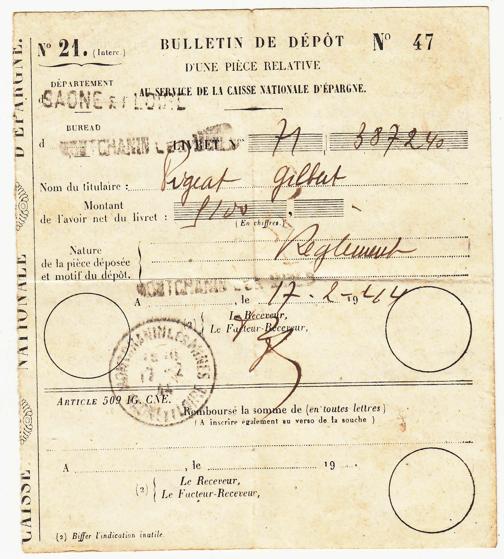 N° 21. (Interc.)
BULLETIN DE DÉPÔT N° 47
D'UNE PIÈCE RELATIVE
AU SERVICE DE LA CAISSE NATIONALE D'ÉPARGNE.
DÉPARTEMENT
d SAÔNE ET LOIRE
BUREAU
d MONTCHANIN LES MINES
LIVRET N° 71 387240
Nom du titulaire : Pigeat Gilbert
Montant
de l'avoir net du livret : 5100
(En chiffres.)
Nature
de la pièce déposée
et motif du dépôt.
Règlement
A MONTCHANIN LES MINES, le 17-2-1944
(2) Le Receveur,
Le Facteur-Receveur,
MONTCHANIN LES MINES
17 -2
44
SAONE ET LOIRE
ARTICLE 509 IG. CNE.
Remboursé la somme de (en toutes lettres)
(A inscrire également au verso de la souche)
A , le 19
(2) Le Receveur,
Le Facteur-Receveur,
(2) Biffer l'indication inutile.
CAISSE NATIONALE D'ÉPARGNE.